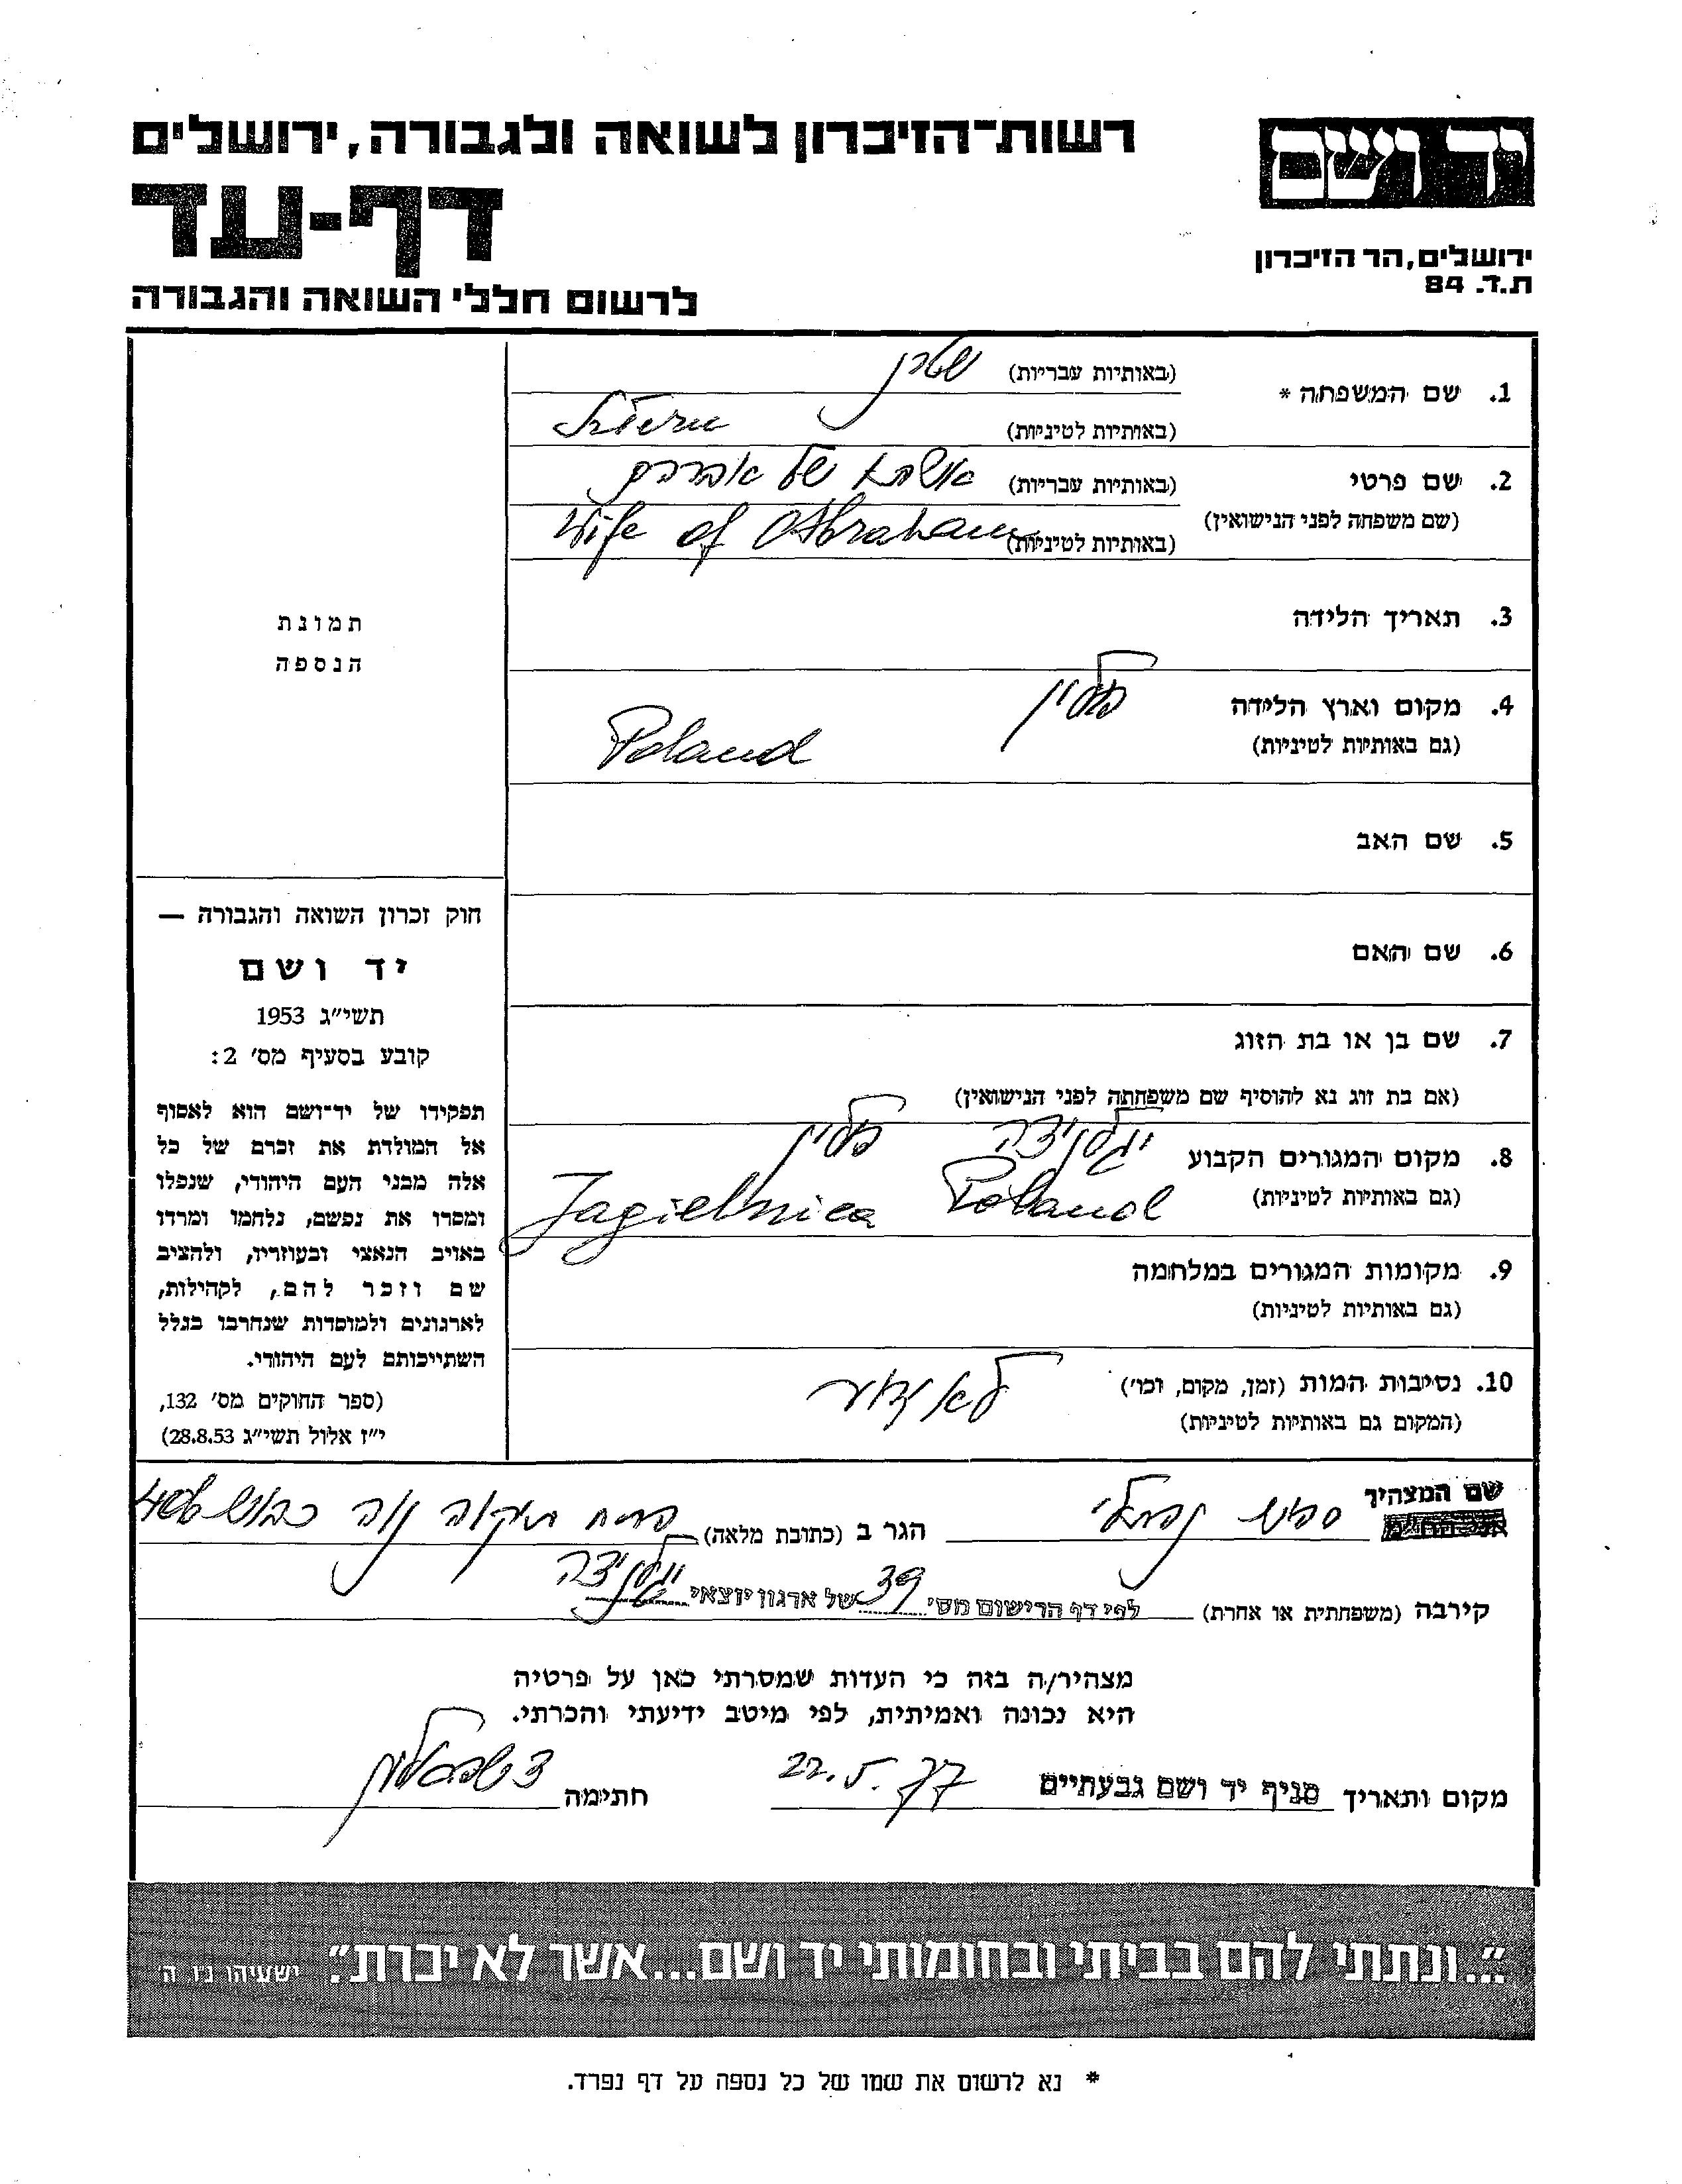 רשות־הזיכרון לשואה ולגבורה, ירושלים
יד ושם
דף-עד
ירושלים, הר הזיכרון
ת.ד. 84
לרשום חללי השואה והגבורה
1. שם המשפחה * (באותיות עבריות) שטרן
(באותיות לטיניות) Stern
2. שם פרטי (באותיות עבריות) אשתו של אברהם
(שם משפחה לפני הנישואין) (באותיות לטיניות) Wife of Abraham
3. תאריך הלידה
4. מקום וארץ הלידה פולין
(גם באותיות לטיניות) Poland
5. שם האב
6. שם האם
7. שם בן או בת הזוג
(אם בת זוג נא להוסיף שם משפחתה לפני הנישואין)
8. מקום המגורים הקבוע יגלניצה פולין
(גם באותיות לטיניות) Jagielnica Poland
9. מקומות המגורים במלחמה
(גם באותיות לטיניות)
10. נסיבות המות (זמן, מקום, וכו') לא ידוע
(המקום גם באותיות לטיניות)
תמונת
הנספה
חוק זכרון השואה והגבורה —
יד ושם
תשי״ג 1953
קובע בסעיף מס׳ 2:
תפקידו של יד־ושם הוא לאסוף
אל המולדת את זכרם של כל
אלה מבני העם היהודי, שנפלו
ומסרו את נפשם, נלחמו ומרדו
באויב הנאצי ובעוזריו, ולהציב
שם וזכר להם, לקהילות,
לארגונים ולמוסדות שנחרבו בגלל
השתייכותם לעם היהודי.
(ספר החוקים מס׳ 132,
י״ז אלול תשי״ג 28.8.53)
שם המצהיר נפתלי הגר ב (כתובת מלאה) פתח תקוה נוה
קירבה (משפחתית או אחרת) לפי דף הרישום מס' 39 של ארגון יוצאי יגלניצה
מצהיר/ה בזה כי העדות שמסרתי כאן על פרטיה
היא נכונה ואמיתית, לפי מיטב ידיעתי והכרתי.
מקום ותאריך סניף יד ושם גבעתיים 22.5.77 חתימה
״...ונתתי להם בביתי ובחומותי יד ושם...אשר לא יכרת״. ישעיהו נ״ו ה׳
* נא לרשום את שמו של כל נספה על דף נפרד.